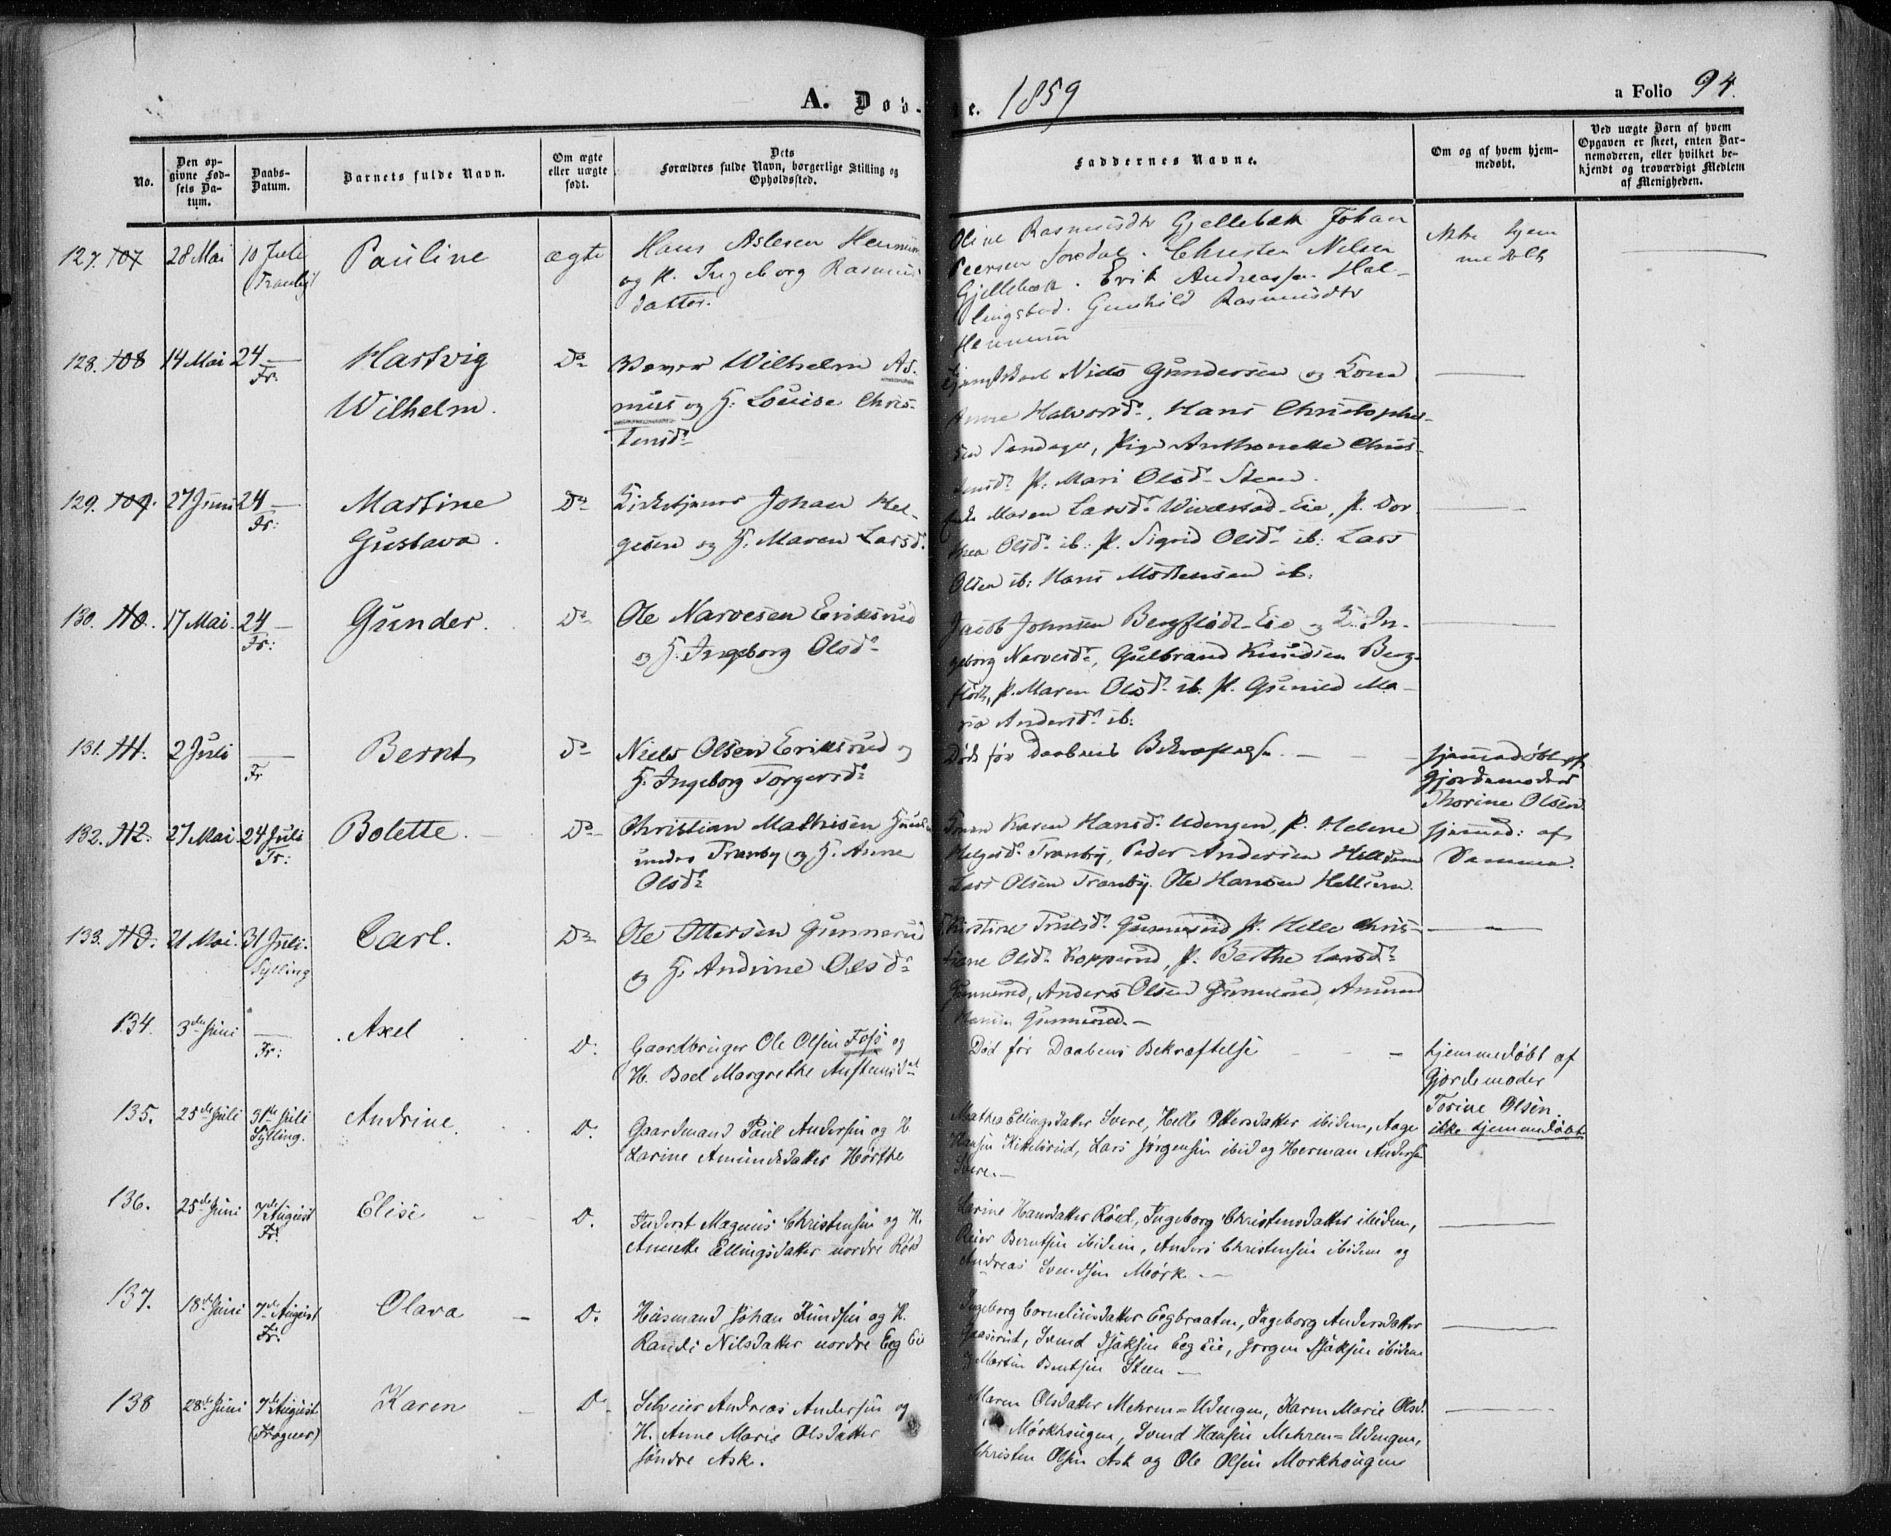 A. Døb-
te. 1859
a Folio 94.
No.
Den op-
givne Fød-
sels Da-
tum.
Daabs-
Datum.
Barnets fulde Navn.
Om ægte
eller uægte
født.
Dets
Forældres fulde Navn, borgerlige Stilling og
Opholdssted.
Faddernes Navne.
Om og af hvem hjem-
medøbt.
Ved uægte Børn af hvem
Opgaven er skeet, enten Bar-
nemoderen, eller hvilket be-
kjendt og troværdigt Medlem
af Menigheden.
127. 107 28 Mai 10 Juli
(Tranby)
Pauline
ægte
Hans Aslesen Hennum
og K. Ingeborg Rasmus
datter.
Oline Rasmusdtr Gjellebæk Johan
Peersen Christen Nilsen
Gjellebæk. Erik Andreassen Hal-
lingstad. Gunhild Rasmusdtr
Hennum
Ikke hjem
medøbt
128. 108 14 Mai 24 —
Fr.
Hartvig
Wilhelm.
Do
Wilhelm As-
mus og H: Louise Chris-
tensdr
Nils Gundersen og Kone
Anne Halvorsdr, Hans Christopher-
sen, Pige Anthonette Chris-
tensdr P. Mari Olsdr Steen.
129. 109. 27 Juni 24 —
Fr:
Martine
Gustava.
Do
Kirketjener Johan Hel-
gesen og H. Maren Larsdr.
Enke Maren Larsdr Eie, P. Dor-
thea Olsdr ib: P. Sigrid Olsdr ib: Lars
Olsen ib: Hans Mortensen ib:
130. 110. 17 Mai. 24 —
Fr:
Gunder.
Do
Ole Narvesen Eriksrud
og H. Ingeborg Olsdr
Jacob Johnsen Bergflødt Eie og K: In-
geborg Narvesdr, Gulbrand Knudsen Berg-
flødt, P. Maren Olsdr ib. P. Gunild Ma-
ria Andersdr ib:
131. 111. 2 Juli —
Fr
Bernt
Do
Niels Olsen Eriksrud og
H. Ingeborg Torgersdr
Død før Daabens Bekræftelse. — — —
hjemmedøbt af
Gjordemoder
Thorine Olsen
132. 112. 27 Mai. 24 Juli
Fr:
Bolette.
Do
Christian Mathisen
under Tranby og H. Anne
Olsdr
Karen Hansdr Udengen, P. Helene
Helgesdr Tranby, Peder Andersen Hellum
Lars Olsen Tranby. Ole Hansen Hellum.
hjemmed: af
Samme.
133. 113. 21 Mai. 31 Juli.
Sylling
Carl.
Do
Ole Ottersen Gunnerud
og H. Andrine Olsdr
Kirstine Trulsdr Gunnerud P. Helle Chris-
tiane Olsdr Kopperud, P. Berthe Larsdr
Gunnerud, Anders Olsen Gunnerud, Amund
Hansen Gunnerud. —
134. 3die Juni —
Fr:
Axel
D.
Gaardbruger Ole Olsen Foss og
H. Boel Margrethe Austensdat
Død før Daabens Bekræftelse — — —
hjemmedøbt af
Gjordemoder
Torine Olsen.
135. 25de Juli 31te Juli
Sylling.
Andrine.
D.
Gaardmand Paul Andersen og H
Larine Amundsdatter Hørthe
Mathea Ellingsdatter Svere, Helle Ottersdatter ibidem, Aage
Hansen Kittilsrud, Lars Jørgensen ibid og Herman Andersen
Svere. —
ikke hjemmedøbt
136. 25de Juni 7de August
Fr.
Elise
D.
Inderst Magnus Christensen og H.
Annette Ellingsdatter nordre Røed
Larine Hansdatter Röed, Ingeborg Christensdatter ibidem,
Reier Berntsen ibidem, Anders Christensen ibidem og
Andreas Svendsen Mørk. —
137. 18de Juni 7de August
Fr.
Olava
D.
Husmand Johan Knudsen og H.
Randi Nilsdatter nordre Eeg Eie
Ingeborg Corneliusdatter Eegbraaten, Ingeborg Andersdatter
Gaaserud, Svend Isaksen Eeg Eie, Jørgen Isaksen ibidem
og Martin Berntsen Steen —
138 28de Juni 7de August
(Frogner)
Karen
D.
Selveier Andreas Andersen og
H. Anne Marie Olsdatter
søndre Ask.
Maren Olsdatter Mehren=Udengen, Karen Marie Olsd.
Mørkhougen, Svend Hansen Mehren=Udengen,
Christen Olsen Ask og Ole Olsen Mørkhougen